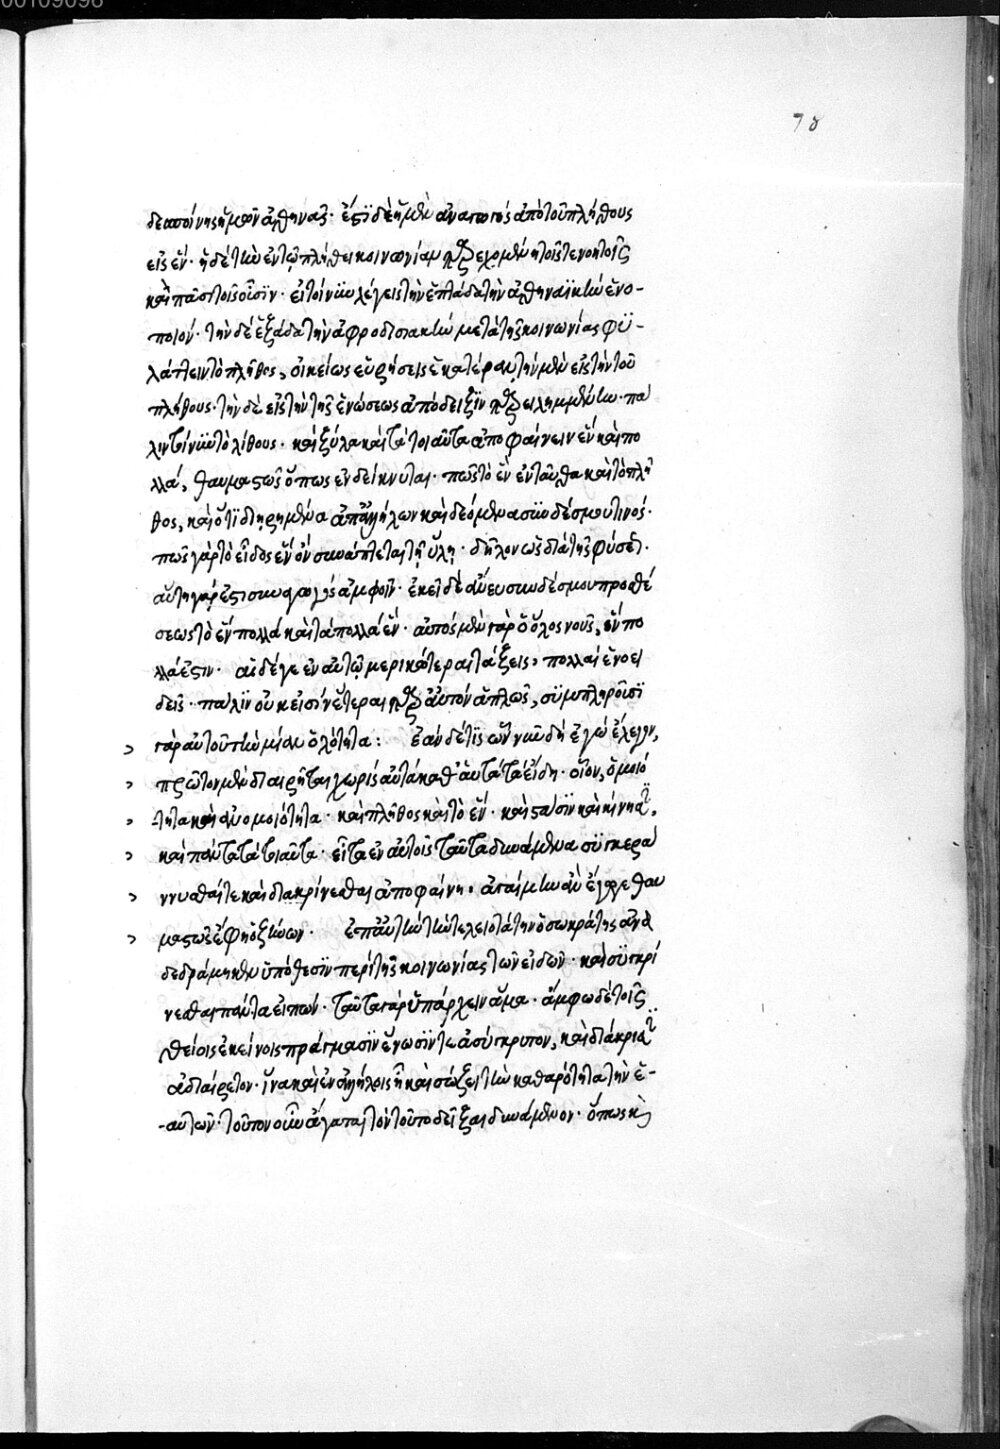 00109098
78
δεσποίνης ἡμῶν ἀθηνᾶς· ἔστι δὲ ἡ μὲν ἀναγωγὸς ἀπὸ τοῦ πλήθους
εἰς ἕν· ἡ δὲ τὴν ἐν τῷ πλήθει κοινωνίαν παρεχομένη τοῖς τε νοητοῖς
καὶ πᾶσι τοῖς οὖσϊν· εἰ τοίνϋν λέγεις τὴν ἑπτάδα τὴν ἀθηναϊκὴν ἑνο-
ποιόν· τὴν δὲ ἑξάδα τὴν ἀφροδισιακὴν μετὰ τῆς κοινωνίας φϋ-
λάττειν τὸ πλῆθος, οἰκείως εὑρήσεις ἑκατέραν τὴν μὲν εἰς τὴν τοῦ
πλήθους· τὴν δὲ εἰς τὴν τῆς ἑνώσεως ἀπόδειξϊν παρειλημμένην· πά
λιν τοίνϋν τὸ λίθους· καὶ ξύλα καὶ τὰ τοιαῦτα ἀποφαίνειν ἓν καὶ πο
λλά, θαυμαστῶς ὅπως ἐνδείκνυται· πῶς τὸ ἓν ἐνταῦθα καὶ τὸ πλῆ
θος, καὶ ὅτϊ διῃρημένα ἀπ' ἀλλήλων καὶ δεόμενα συνδέσμου τινός·
πῶς γὰρ τὸ εἶδος ἓν ὂν συνάπτεται τῇ ὕλῃ· δῆλον ὡς διὰ τῆς φύσεως·
αὕτη γάρ ἐστι συναγωγὸς ἀμφοῖν· ἐκεῖ δὲ ἄνευ συνδέσμου προσθέ
σεως τὸ ἓν πολλὰ καὶ τὰ πολλὰ ἕν· αὐτὸς μὲν γὰρ ὁ ὅλος νοῦς, ἓν πο
λλά ἐστιν· αἱ δέ γε ἐν αὐτῷ μερικώτεραι τάξεις, πολλαὶ ἑνοει
δεῖς· πάλϊν οὐκ εἰσὶν ἕτεραι παρ' αὐτὸν ἁπλῶς, σϋμπληροῦσϊ
γὰρ αὐτοῦ τὴν μίαν ὁλότητα: ἐὰν δέ τϊς ὧν νῦν δὴ ἐγὼ ἔλεγον,
πρῶτον μὲν διαιρῆται χωρὶς αὐτὰ καθ' αὑτὰ τὰ εἴδη· οἷον, ὁμοιό
τητα καὶ ἀνομοιότητα· καὶ πλῆθος καὶ τὸ ἕν· καὶ στάσϊν καὶ κίνησϊν,
καὶ πάντα τὰ τοιαῦτα· εἶτα ἐν αὐτοῖς ταῦτα δυνάμενα σϋγκερά
ννυσθαί τε καὶ διακρίνεσθαι ἀποφαίνῃ, ἀγαίμην ἂν ἔγωγε θαυ
μαστῶς ἔφη ὦ ζήνων· ἐπ' αὐτὴν τὴν τελειοτάτην ὁ σωκράτης ἀνα
δεδράμηκεν ὑπόθεσϊν περὶ τῆς κοινωνίας τῶν εἰδῶν· καὶ σϋγκρί
νεσθαι πάντα εἰπών· ταῦτα γὰρ ὑπάρχειν ἅμα· ἄμφω δὲ τοῖς
θείοις ἐκείνοις πράγμασϊν ἕνωσϊν τε ἀσύγκριτον, καὶ διάκρισϊν
ἀδιαίρετον· ἵνα καὶ ἐν ἀλλήλοις ᾖ καὶ σώζει τὴν καθαρότητα τὴν ἑ-
-αυτῶν· τοῦτον οὖν ἀγαπαι τὸν τοῦτο δεῖξαι δυνάμενον· ὅπως καὶ